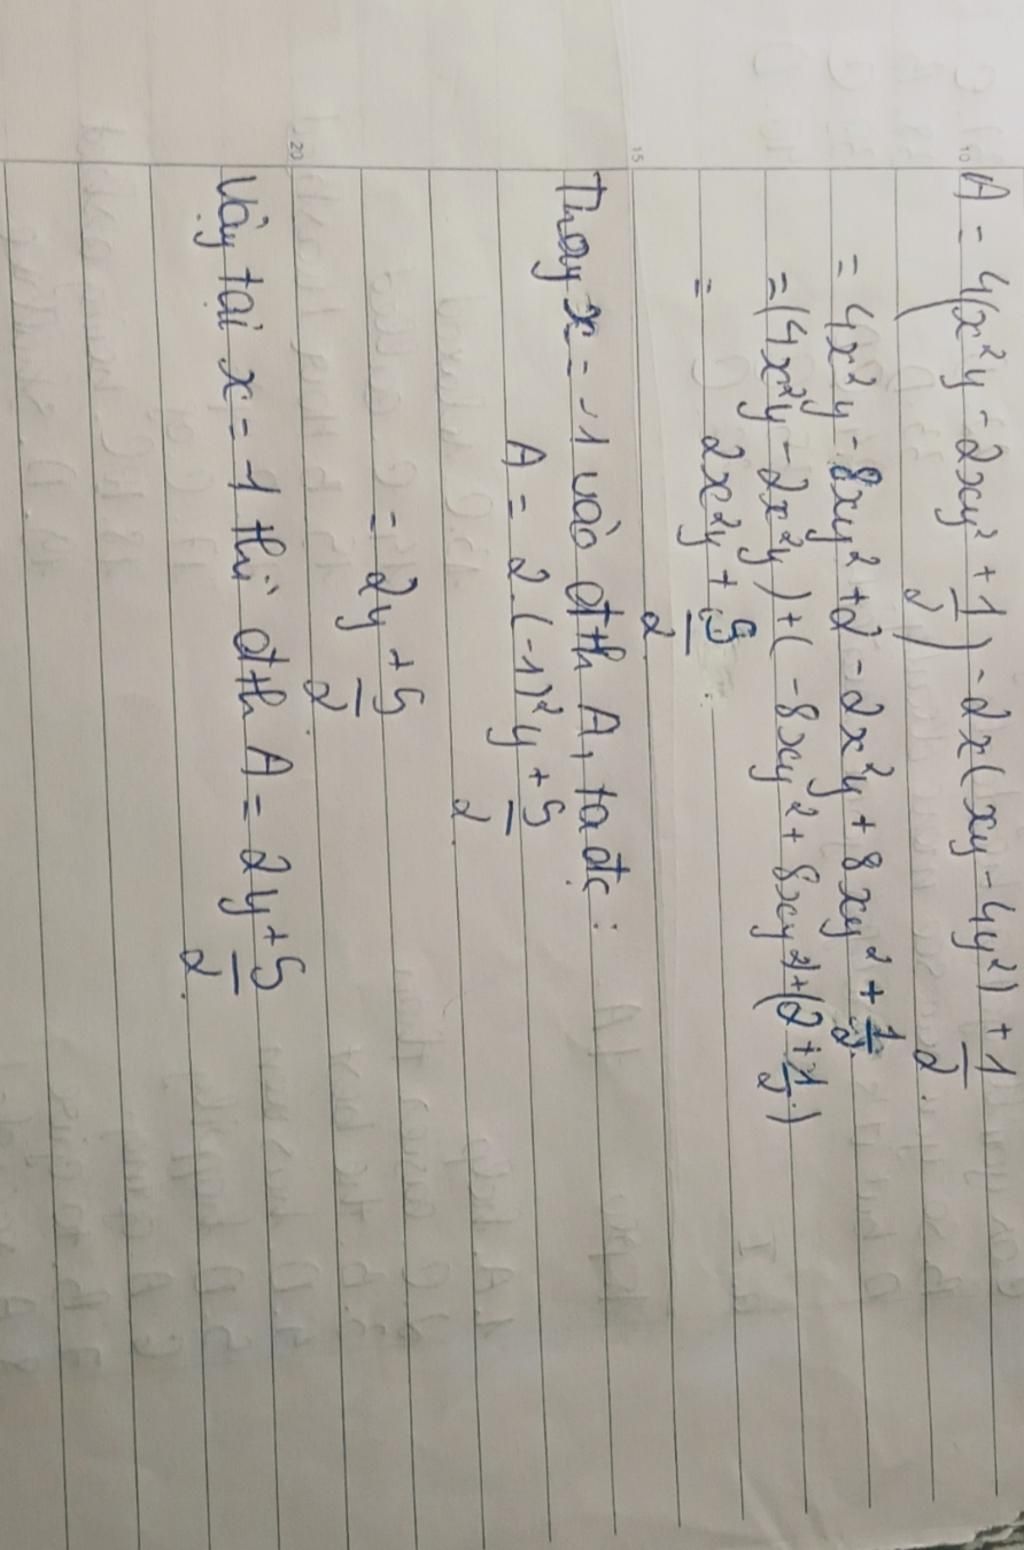 10
A = 4(x²y - 2xy² + 1/2) - 2x(xy - 4y²) + 1/2.
= 4x²y - 8xy² + 2 - 2x²y + 8xy² + 1/2.
= (4x²y - 2x²y) + (-8xy² + 8xy²) + (2 + 1/2)
= 2x²y + 5/2
15
Thay x = -1 vào đth A, ta đc:
A = 2.(-1)²y + 5/2.
= 2y + 5/2.
20
Vậy tại x = -1 thì đth A = 2y + 5/2.